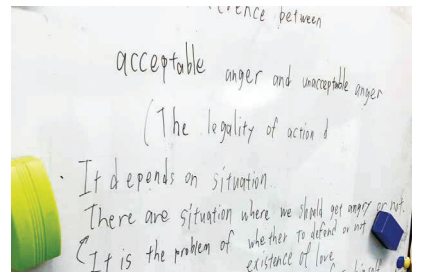 between
acceptable anger and unacceptable anger
(The legality of action d
· It depends on situation
There are situation where we should get angry or not.
(It is the problem of whether to defend or not
existence of love